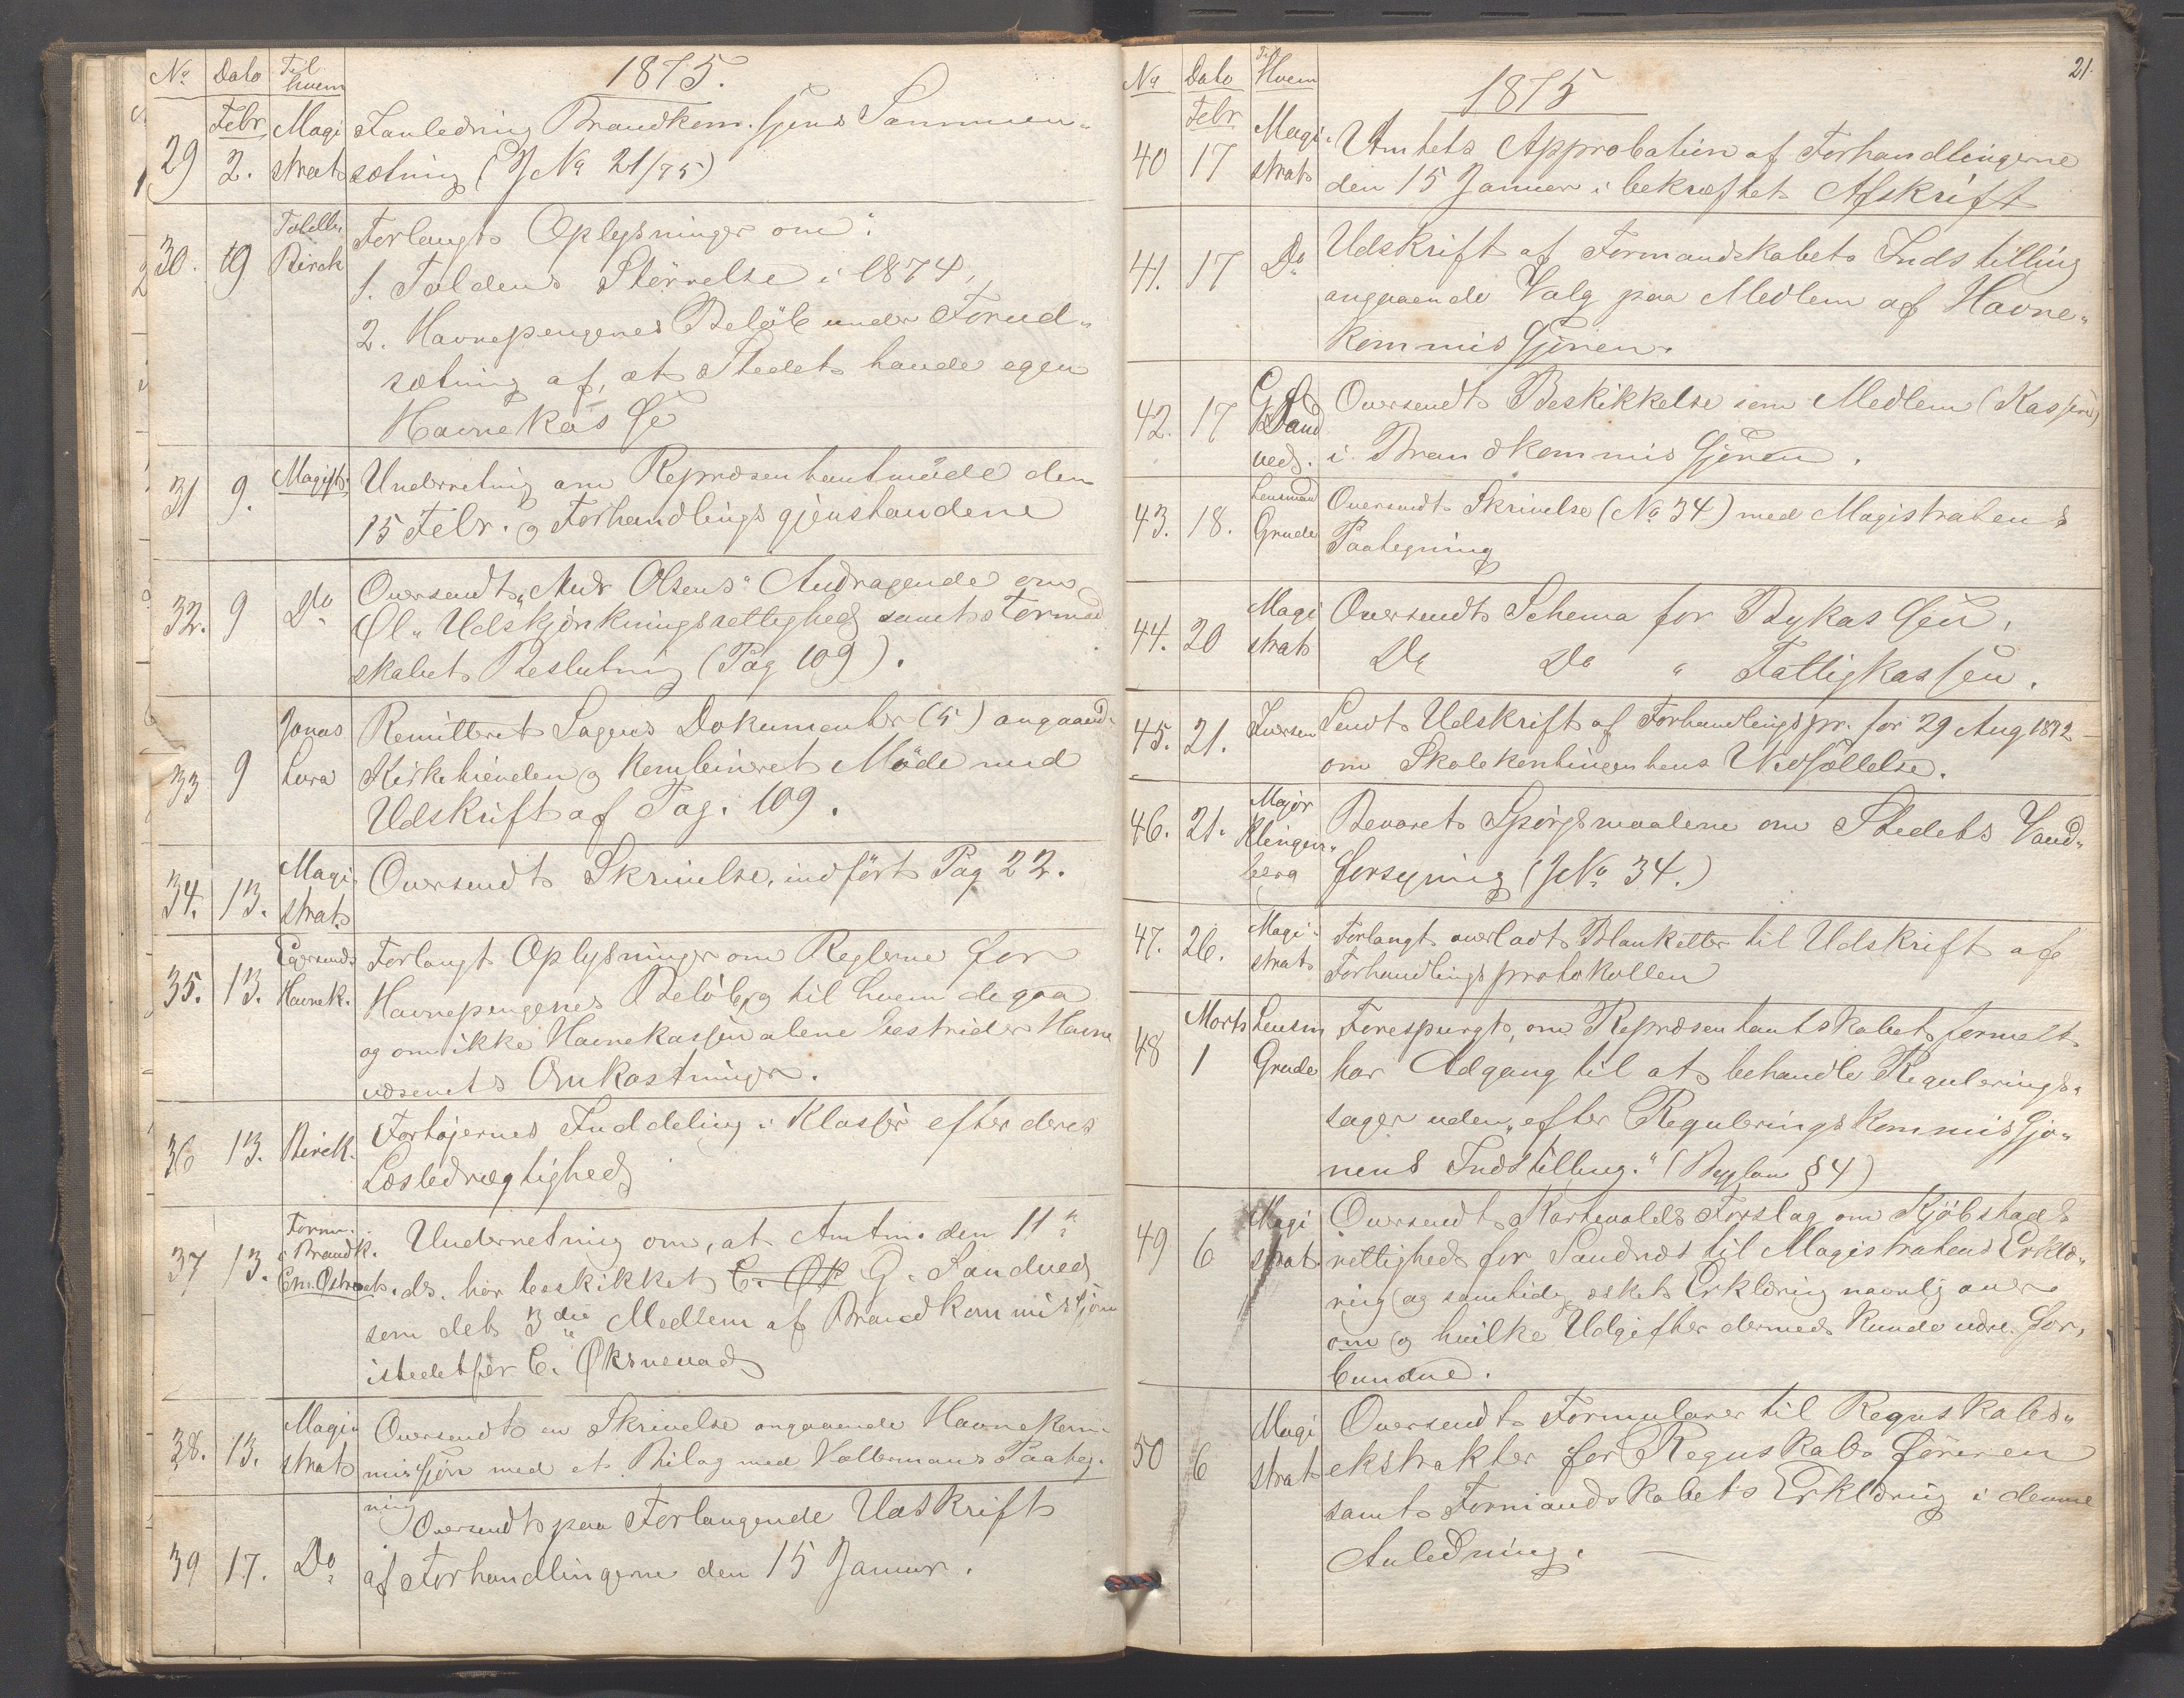 No Dato Til hvem 1875.
29 Febr 2. Magi strat I anledning Brandkom.sjons Sammen-
sætning (J No 21/75)
30. 9 Toldbu Birck Forlangt Oplysninger om:
1. Toldens Störrelse i 1874,
2. Havnepengenes Belöb under Forud-
sætning af, at Stedet havde egen
Havnekasse
31 9. Magistr. Underretning om Repræsentantmöde den
15 Febr. og Forhandlingsgjenstandene
32. 9 Do Oversendt "Andr Olsens" Andragende om
Øl-Udskjænkningsrettighed samt Formand
skabets Beslutning (Pag 109).
33 9 Jonas Lura Remitteret Sagens Dokumenter (5) angaaend.
Kirketienden og kombineret Möde med
Udskrift af Pag. 109.
34. 13. Magi. strat. Oversendt Skrivelse, indfört Pag 22.
35. 13. Egersunds Havnek. Forlangt Oplysninger om Reglerne for
Havnepengenes Belöb, og til hvem de gaa
og om ikke Havnekassen alene bestrider Havne
væsenets Omkostninger.
36 13. Birck. Fartöjernes Inddeling i Klasser efter deres
Læsledrægtighed
37 13. Form. i Brandk. Em. Østraat. Underretning om, at Amtm. den 11te
ds. har beskikket C. Øk G. Sandved
som det 3die Medlem af Brandkommissjonen
istedetfor C. Øksnevad
38. 13. Magi- strat Oversendt en Skrivelse angaaende Havnekom-
missjon med et Bilag med Paateg-
ning
39 17. Do Oversendt paa Forlangende Udskrift
af Forhandlingerne den 15 Januar.
21.
No Dato Til Hvem 1875
40 Febr 17 Magi- strat Amtets Approbation af Forhandlingerne
den 15 Januar i bekræftet Afskrift
41. 17 Do Udskrift af Formandskabets Indstilling
angaaende Valg paa Medlem af Havne-
kommissjonen.
42. 17 G Sand ved. Oversendt Beskikkelse som Medlem (Kasserer)
i Brandkommissjonen.
43. 18. Lensmand Grude Oversendt Skrivelse (No 34) med Magistratens
Paategning
44. 20 Magi strat Oversendt Schema for Bykassen,
Do Do " Fattigkassen.
45. 21. Iversen Sendt Udskrift af Forhandlingspr. for 29 Aug 1872
om Skolekontingentens Nedsættelse.
46. 21. Major Klingen- berg Besvaret Spörgsmaalene om Stedets Vand-
forsyning (J No 34.)
47. 26. Magi- strat Forlangt overladt Blanketter til Udskrift af
Forhandlingsprotokollen
48 Marts 1 Lensm Grude Forespurgt, om Repræsentantskabet formelt
har Adgang til at behandle Regulerings-
sager uden "efter Reguleringskommissjo-
nens Indstilling." (Byglov § 4)
49 6 Magi strat Oversendt Forslag om Kjöbstads
rettighed for Sandnæs til Magistratens Erklæ-
ring og samtidig æsket Erklæring navnlig over
om og hvilke Udgifter dermed kunde være for-
bundne.
50 6 Magi strat Oversendt Formularer til Regnskabs-
ekstrakter for Regnskabsföreren
samt Formandskabets Erklæring i denne
Anledning.